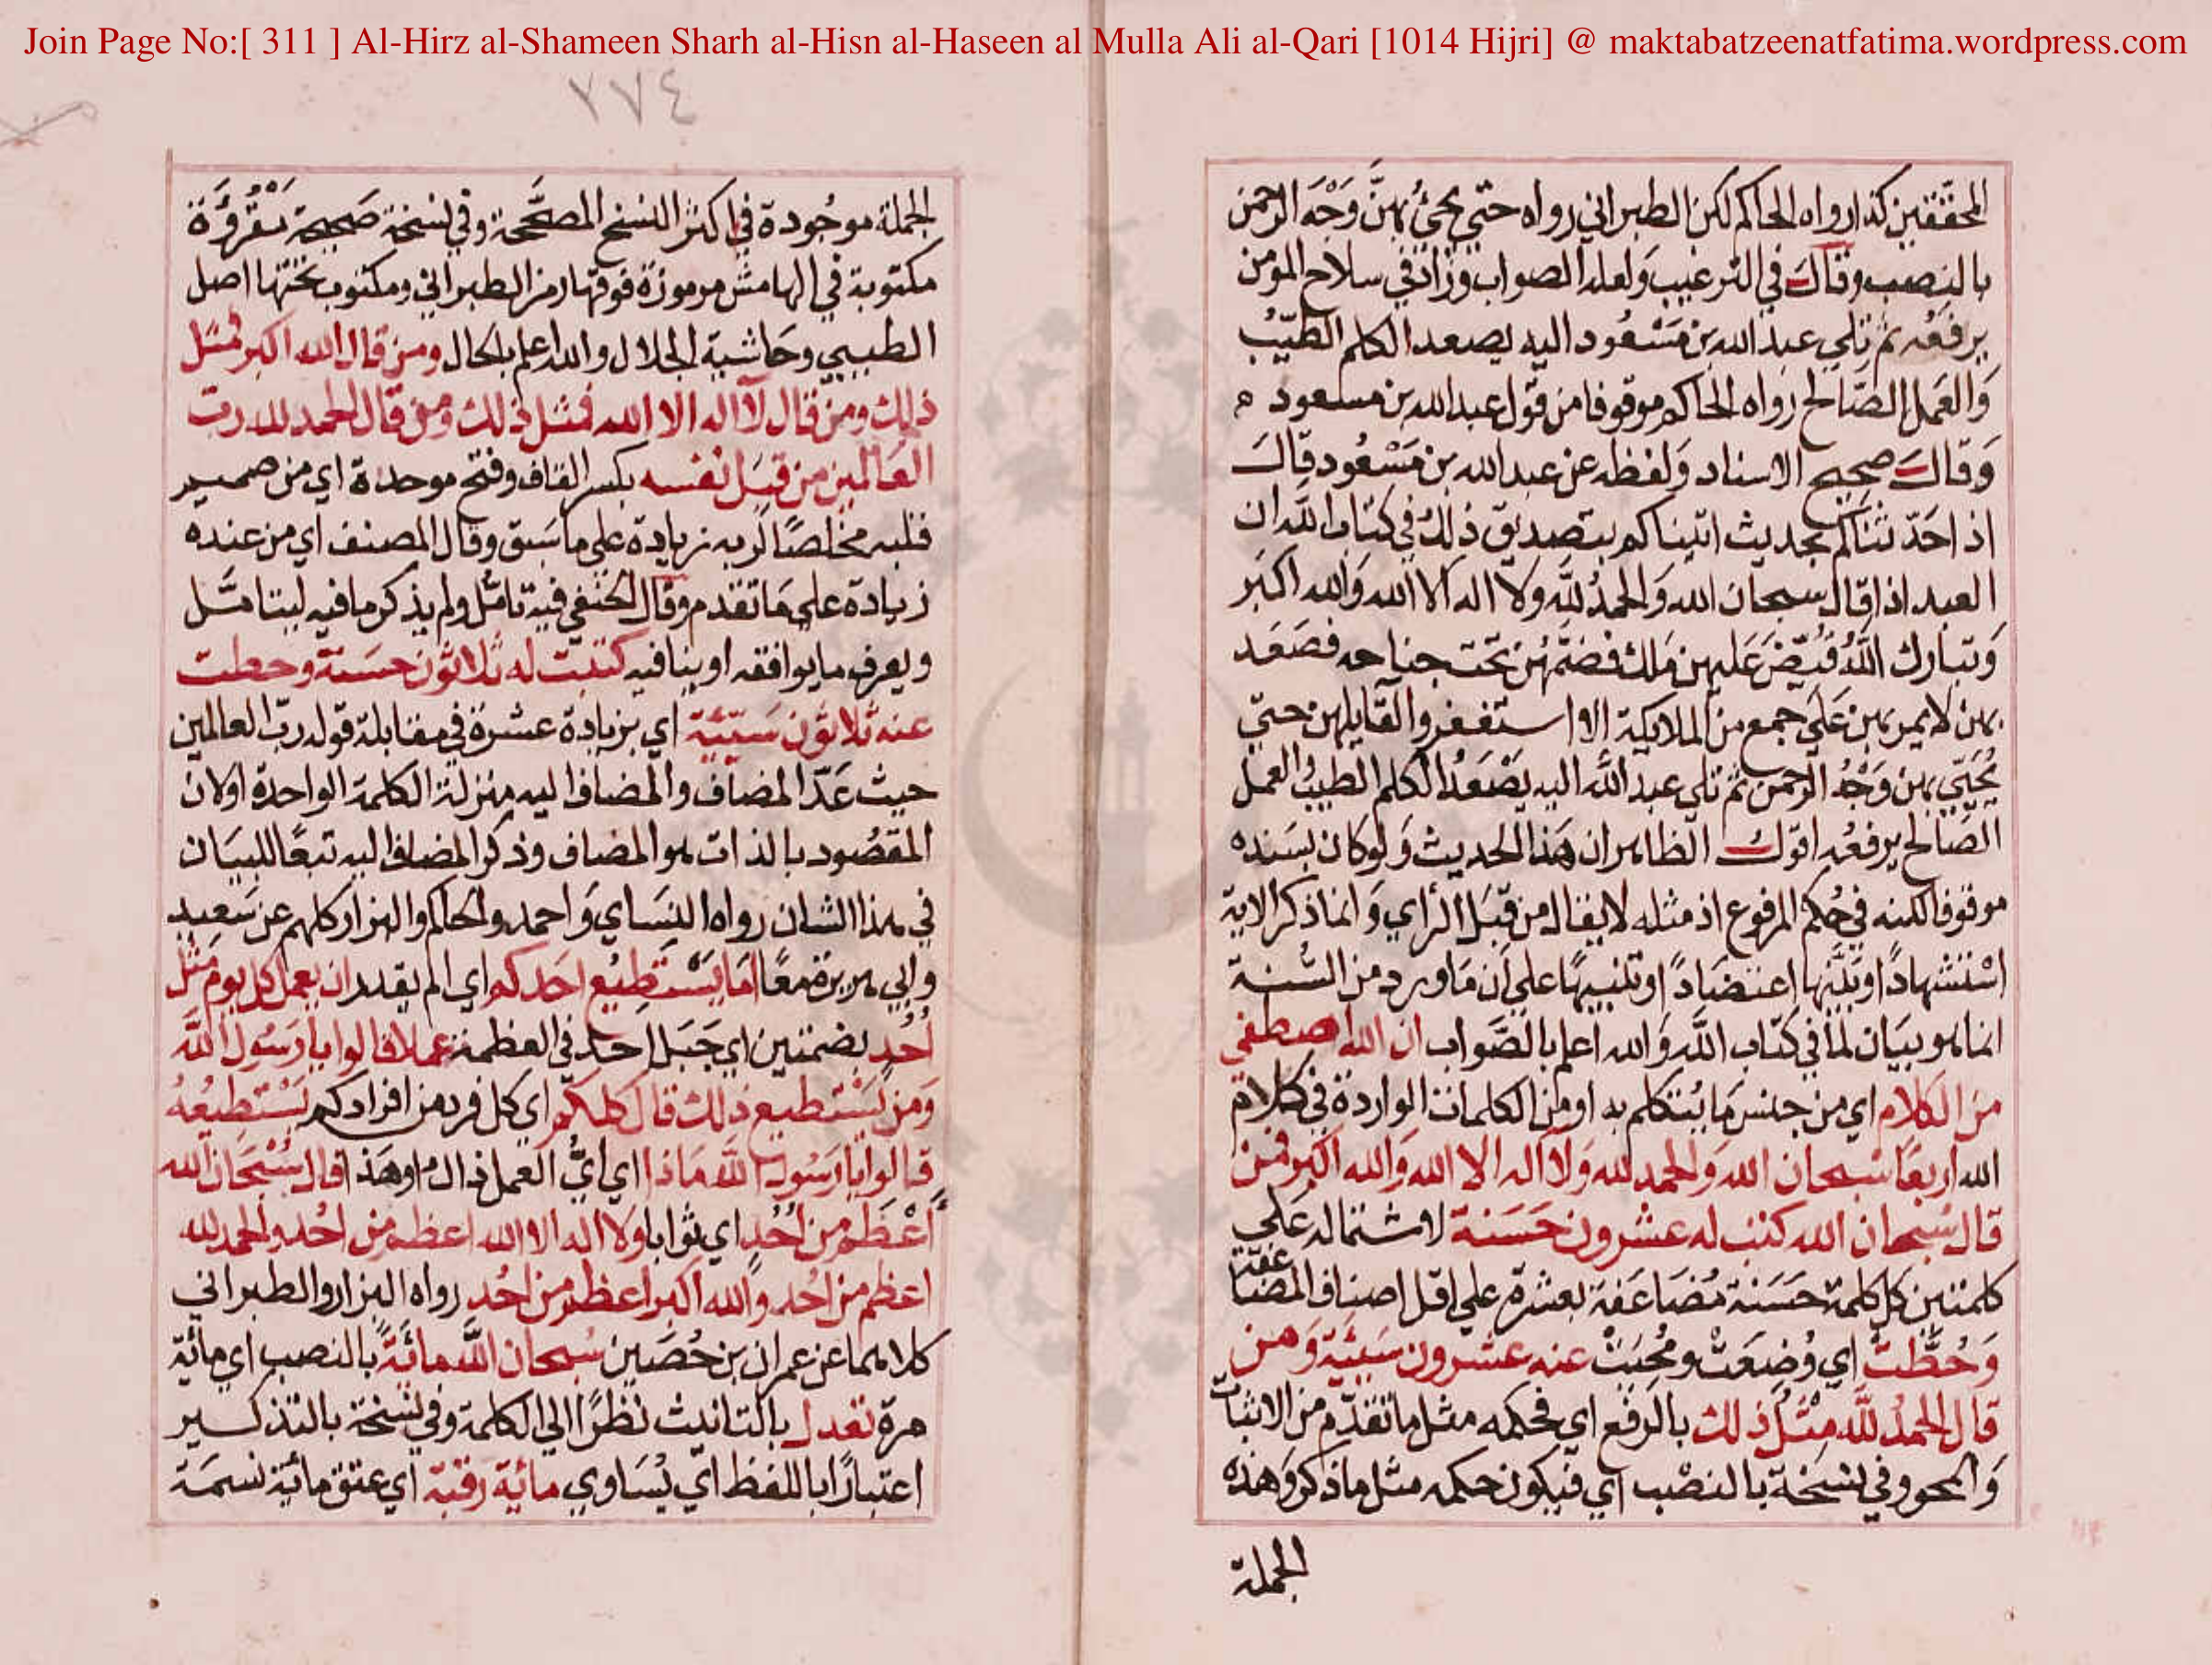 Join Page No:[ 311 ] Al-Hirz al-Shameen Sharh al-Hisn al-Haseen al Mulla Ali al-Qari [1014 Hijri] @ maktabatzeenatfatima.wordpress.com
المحققين كذا رواه الحاكم لكن الطبراني رواه حتى يجئ بهنَّ وَجْهَ الرحمن
بالنصب وقال في الترغيب وَلعله الصواب وزاد في سلاح المؤمن
يرفعُه ثم تلى عبد الله بن مَسْعُود اليه يصعد الكلم الطيّبُ
وَالعَمل الصَّالح رواه الحاكم موقوفا من قول عبد الله بن مسعود
وَقالَ صحيح الاسناد وَلفظه عن عبد الله بن مَسْعُود قالَ
اذا حَدّثناكم بحديث اتيناكم بتصديق ذلك في كتاب الله ان
العبد اذا قال سبحان الله وَالحمدُ لله ولا اله الا الله وَالله اكبر
وَتبارك اللهُ قُبِّضَ عَليهن مَلك فضمّهُن تحت جناحه فصَعَد
بهن لا يمر بهن عَلى جمع من الملايكة الا استغفروا لقايلهن حتى
يُحَيّي بهن وَجْهُ الرحمن ثم تلى عبد الله اليه يَصْعَدُ الكلم الطيبُ والعمل
الصَّالح يرفعُه اقول الظاهر ان هَذا الحديث وَلو كان بسَنده
موقوفا لكنه في حُكم المرفوع اذ مثله لا يقال من قِبَل الرأي وَانما ذكر الاية
اسْتشهادًا وبَيَّنها اعتضادًا وتنبيهًا على ان مَا ورد من السُّنة
انما هو بيَان لما في كتاب الله وَالله اعلم بالصَّواب ان الله اصطفى
من الكلام اي من جنس مَا يُتكلم به او من الكلمات الواردة في كلام
الله اربعًا سُبحان الله وَالحمد لله وَلا اله الا الله وَالله اكبر فمن
قال سُبحان الله كتب له عشرون حَسَنة لاشتماله عَلى
كلمتين كل كلمة حَسَنة مُضاعَفة بعشرة على اقل اصناف المضاعفة
وَحُطَّتْ اي وُضِعَتْ ومُحِيَتْ عنه عشرون سَيّئة وَمن
قال الحمدُ لله مِثلُ ذلك بالرفع اي فحكمه مثل ما تقدّم من الاثبات
وَالمحو وفي نسخة بالنصْب اي فيكون حكمه مثل ما ذكر وَهَذه
الجملة
٢٧٤
الجملة موجُودة في اكثر النسخ المصَحَّحة وفي نسخة صَحيحة مَقْرُوَّة
مكتوبة في الهامش مرموزة فوقها رمز الطبراني ومكتوب تحتها اصل
الطيبي وحَاشية الجلال والله اعلم بالحال ومن قال الله اكبر فمثل
ذلك ومن قال لا اله الا الله فمثل ذلك ومن قال الحمد لله رب
العَالمين من قِبَل نفسه بكسر القاف وفتح موحدة اي من صميم
قلبه مخلصًا لربه زيادة على ما سَبق وقال المصنف اي من عنده
زيادة على مَا تقدم وقال الحنفي فيه تامُّل ولم يذكر ما فيه ليتامَّل
ويعرف ما يوافقه او ينافيه كتبت له ثلاثون حسَنة وحطت
عنه ثلاثون سَيّئة اي بزيادة عشرة في مقابلة قوله ربّ العالمين
حيث عَدّ المضاف والمضاف اليه منزلة الكلمة الواحدة او لان
المقصُود بالذات هو المضاف وذكر المضاف اليه تبعًا للبيَان
في هذا الشان رواه النسَاي وَاحمد والحاكم والبزار كلهم عن سَعيد
وابي هريرة معًا امَا يَسْتَطيُع احَدكم اي الم يقدر ان يعمل كل يوم مثل
اُحُدٍ بضمتين اي جَبَل احد في العظمة عملا قالوا يا رَسُول اللهَ
وَمن يَسْتطيع ذلك قال كلكم اي كل فرد من افرادكم يَسْتطيعُهُ
قالوا يا رَسُول الله مَاذا اي ايُّ العمل ذاك او هَذا قال سُبْحَان الله
اَعْظَم من اُحُدٍ اي ثوابا ولا اله الا الله اعظم من احُد والحمد لله
اعظم من احُد وَالله اكبر اعظم من احُد رواه البزار والطبراني
كلاهما عن عمران بن حُصَين سُبحان الله مائَةً بالنصب اي مائة
مرة تعدل بالتانيث نظرًا الى الكلمة وفي نسخة بالتذكير
اعتبارًا باللفظ اي يُسَاوي مائة رقبة اي عتق مائة نسَمَة